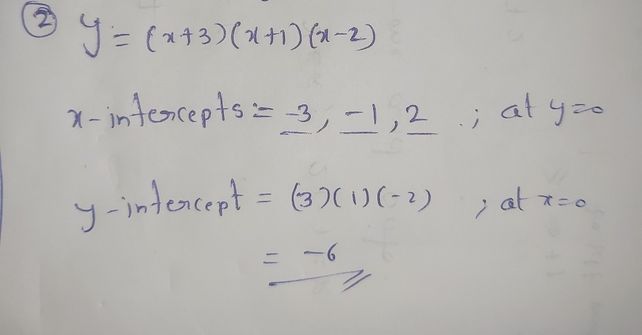 ② y = (x+3)(x+1)(x-2)
x-intercepts = -3, -1, 2 ; at y=0
y-intercept = (3)(1)(-2) ; at x=0
= -6